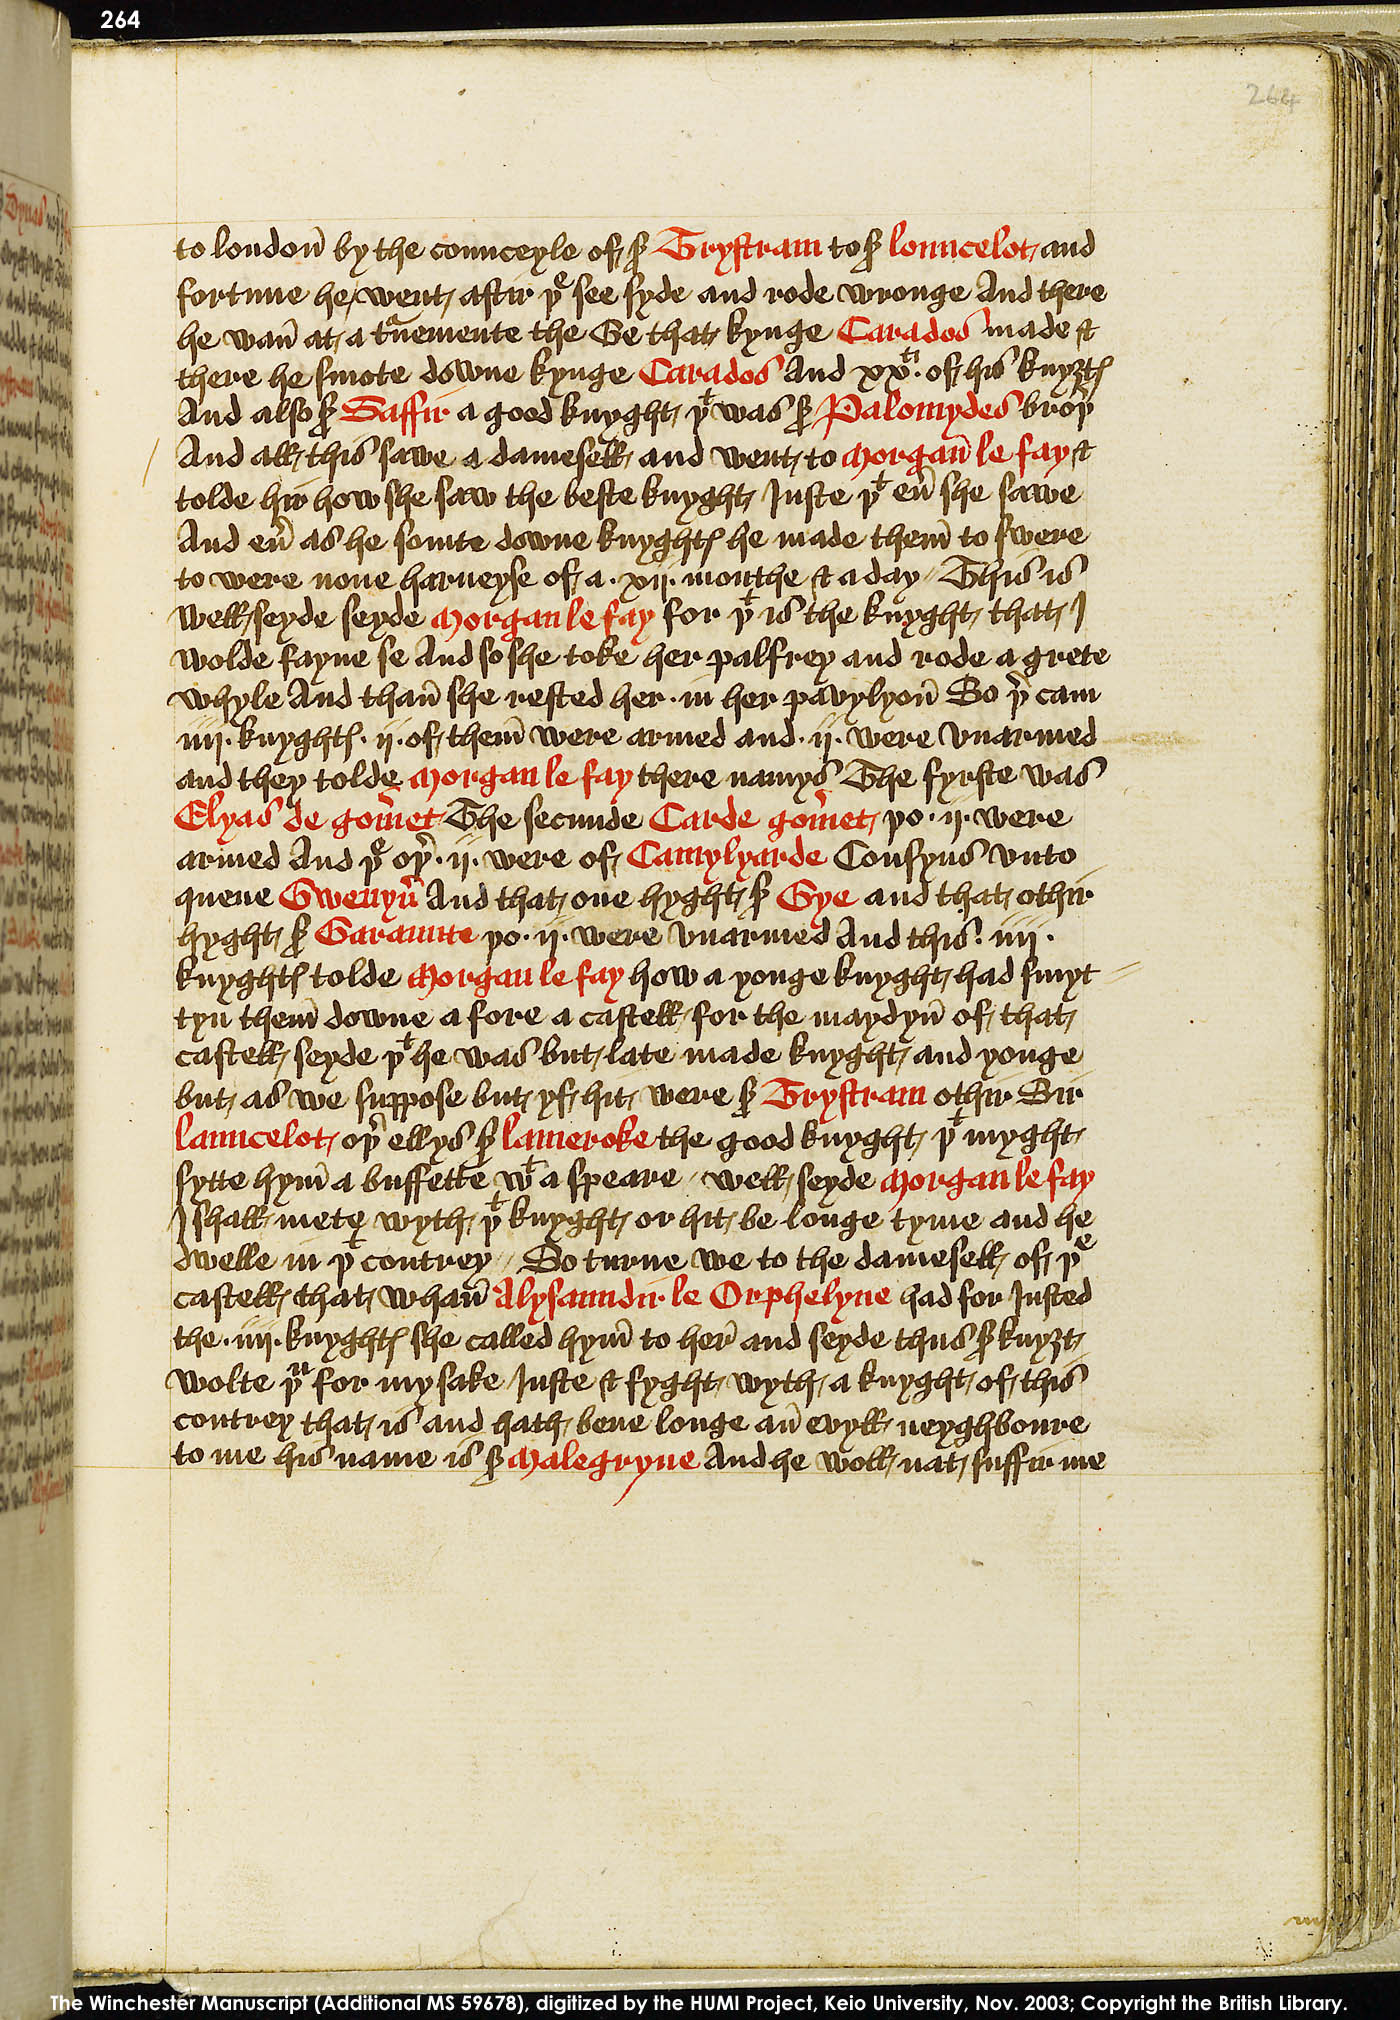 264
264
to londoñ by the counceyle of sͬ Trystram to sͬ launcelot and
fortune he went aftir þͤ see syde and rode wronge And there
he wañ at a tᵘnemente the Gre that kynge Carados made &
there he smote downe kynge Carados And xxᵗⁱ. of his knyȝtꝭ
And also sͬ Saffir a good knyght þᵗ was sͬ Palomydes broþ̉
And all this sawe a damesell and went to Morgañ le fay &
tolde hir how she saw the beste knyght Juste þᵗ eủ she sawe
And eủ as he somte downe knyghtꝭ he made them̄ to swere
to were none harneyse of a . xij . monthe & a day // This is
well seyde seyde Morgan le fay for þᵗ is the knyght that I
wolde fayne se And so she toke her palfrey and rode a grete
whyle And thañ she rested her . in her pavylyoñ So þ̉ cam
iiij . knyghtꝭ . ij . of them̄ were armed and . ij . were vnarmed
and they tolde Morgan le fay there namys The fyrste was
Elyas de gom̉et The secunde Carde gom̉et þo . ij . were
armed And þͤ oþ̉ . ij . were of Camylyarde Consyns vnto
quene Gwenyủ And that one hyght sͬ Gye and that othir
hyght sͬ Garaunte þo . ij . were vnarmed And this . iiij .
knyghtꝭ tolde Morgan le fay how a yonge knyght had smyt =
tyn them̄ downe a fore a castell for the maydyñ of that
castell seyde þᵗ he was but late made knyght and yonge
but as we suppose but yf hit were sͬ Trystram othir Sir
launcelot oþ̉ ellys sͬ lameroke the good knyght þᵗ myght
sytte hym̄ a buffette wᵗ a speare // well seyde Morgan le fay
I shall mete wyth þᵗ knyght or hit be longe tyme and he
dwelle in þᵗ contrey // So turne we to the damesell of þͤ
castell that whañ Alysaundir le Orphelyne had for Justed
the . iiij . knyghtꝭ she called hym̄ to her̄ and seyde thus sͬ knyȝt
wolte þᵘ for my sake Juste & fyght wyth a knyght of this
contrey that is and hath bene longe añ evyll neyghboure
to me his name is sͬ Malegryne And he woll nat suffir me
The Winchester Manuscript (Additional MS 59678), digitized by the HUMI Project, Keio University, Nov. 2003; Copyright the British Library.